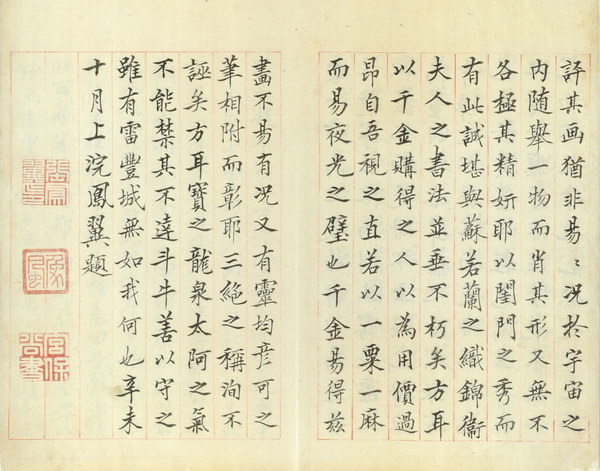 評其画猶非易〻况於宇宙之
内随舉一物而肖其形又無不
各極其精妍耶以閨門之秀而
有此誠堪與蘇若蘭之織錦衞
夫人之書法並垂不朽矣方耳
以千金購得之人以為用價過
昂自吾視之直若以一粟一麻
而易夜光之璧也千金易得兹
畫不易有况又有靈均彦可之
筆相附而彰耶三絶之稱洵不
誣矣方耳寶之龍泉太阿之氣
不能禁其不達斗牛善以守之
雖有雷豐城無如我何也辛未
十月上浣鳳翼題